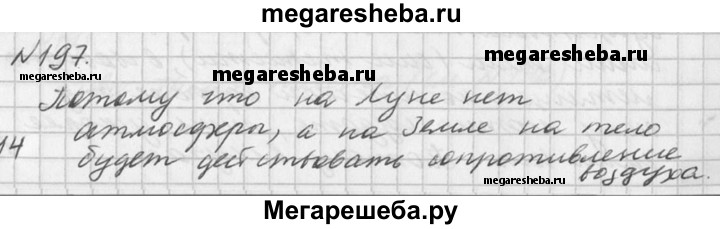 megaresheba.ru
N197.
megaresheba.ru
megaresheba.ru
megaresheba.ru
Потому что на Луне нет
14
атмосферы, а на Земле на тело
будет действовать сопротивление
воздуха.
megaresheba.ru
megaresheba.ru
Мегарешеба.ру